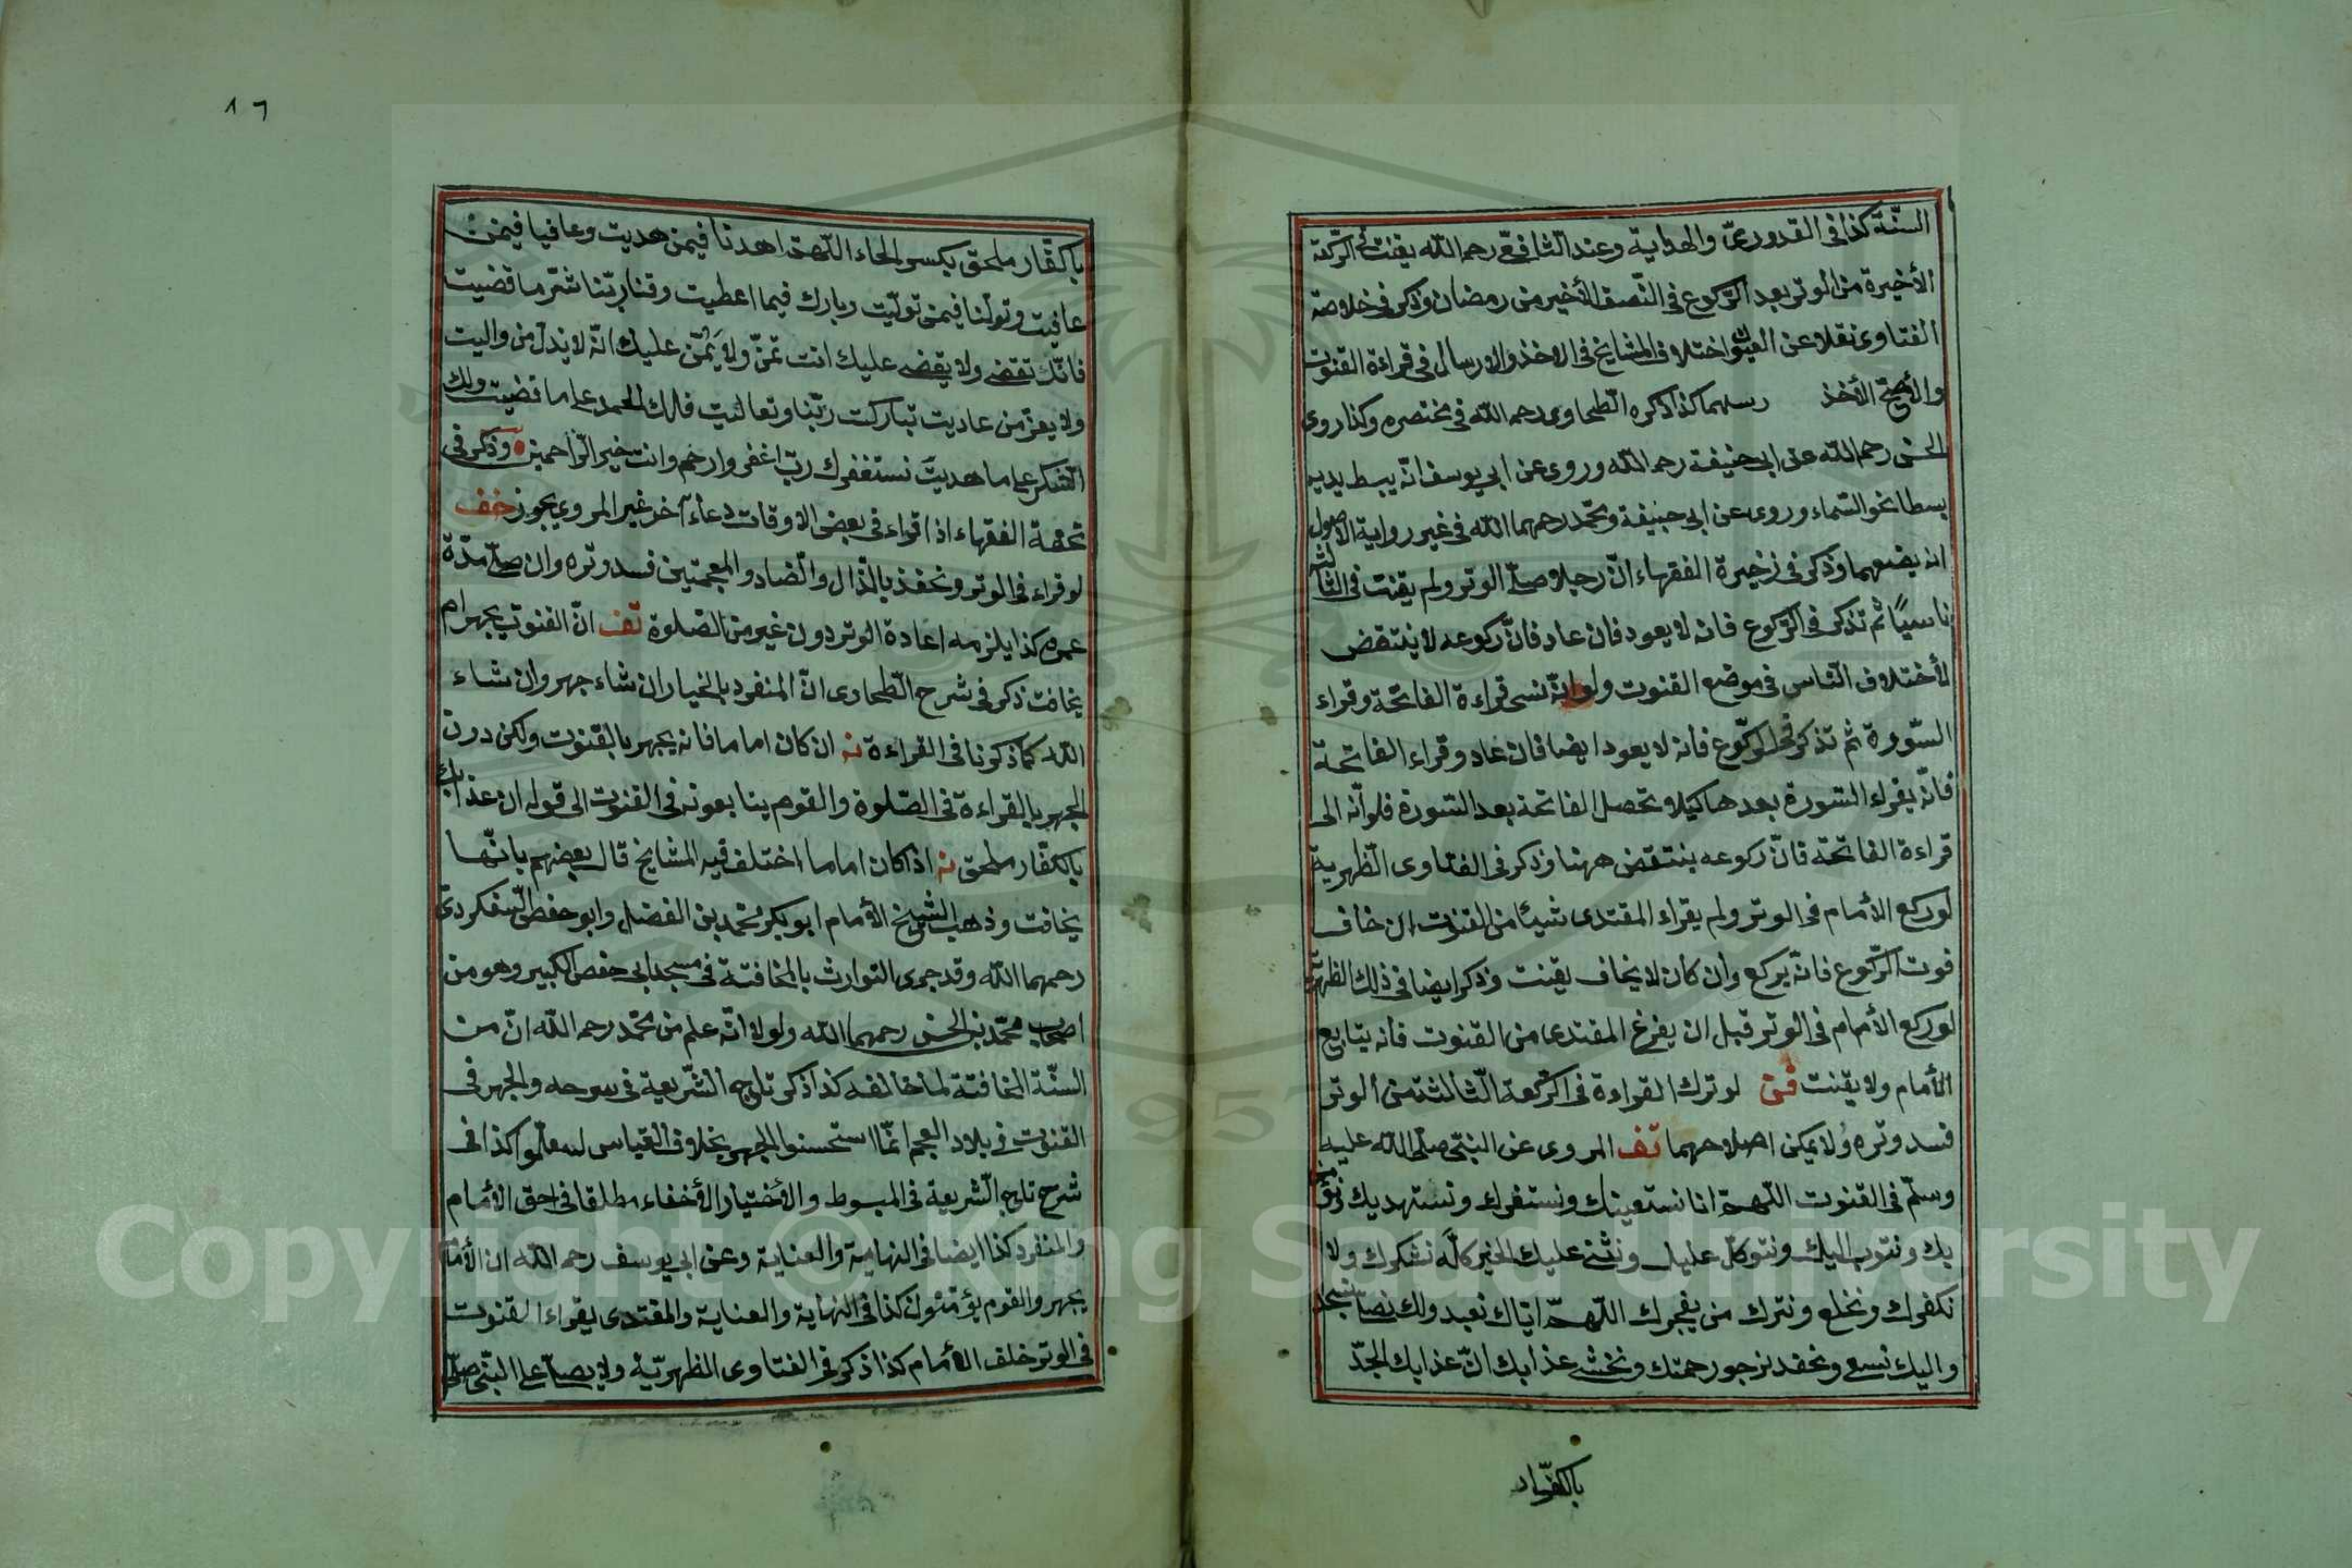 السنّة كذا فى القدورىّ والهداية وعند الشافعىّ رحمه الله يقنت فى الركعة
الأخيرة من الوتر بعد الركوع فى النّصف الأخير من رمضان وذكر فى خلاصة
الفتاوى نقلا عن اختلاف المشايخ فى الاخذ والارسال فى قراءة القنوت
والأصحّ الأخذ رسلهما كذا ذكره الطّحاوى رحمه الله فى مختصره وكذا روى
الحسن رحمه الله عن ابى حنيفة رحمه الله وروى عن ابى يوسف انّه يبسط يديه
بسطا نحو السّماء وروى عن ابى حنيفة ومحمّد رحمهما الله فى غير رواية الاصول
انه يضعهما وذكر فى زخيرة الفقهاء انّ رجلا صلّى الوتر ولم يقنت فى الثالثة
ناسيًا ثم تذكر فى الرّكوع فانه لا يعود فان عاد فانّ ركوعه لا ينتقض
لأختلاف النّاس فى موضع القنوت ولو انّه نسى قراءة الفاتحة وقراء
السّورة ثم تذكر فى الركوع فانه لا يعود ايضا فان عاد وقراء الفاتحة
فانّه يقراء السّورة بعدها كيلا تحصل الفاتحة بعد السّورة فلو انّه الى
قراءة الفاتحة فانّ ركوعه ينتقض ههنا وذكر فى الفتاوى الظّهرية
لو ركع الأمام فى الوتر ولم يقراء المقتدى شيئا من القنوت ان خاف
فوت الرّكوع فانّه يركع وان كان لا يخاف يقنت وذكر ايضا فى ذلك الظهريّة
لو ركع الأمام فى الوتر قبل ان يفرغ المقتدى من القنوت فانه يتابع
الأمام ولا يقنت لو ترك القراءة فى الرّكعة الثّالثة من الوتر
فسد وتره ولا يمكن اصلاحهما تف المروى عن النبىّ صلّى الله عليه
وسلّم فى القنوت اللّهمّ انا نستعينك ونستغفرك ونستهديك ونؤمن
بك ونتوب اليك ونتوكّل عليك ونثنى عليك الخير كلّه نشكرك ولا
نكفرك ونخلع ونترك من يفجرك اللّهمّ ايّاك نعبد ولك نصلى ونسجد
واليك نسعى ونحفد نرجو رحمتك ونخشى عذابك انّ عذابك الجدّ
بالكفّار
١٦
باكفّار ملحق بكسر الحاء اللّهمّ اهدنا فيمن هديت وعافيا فيمن
عافيت وتولّنا فيمن تولّيت وبارك فيما اعطيت وقنا ربّنا شرّ ما قضيت
فانّك تقضى ولا يقضى عليك انت تمنّ ولا يمنّ عليك انّه لا يذلّ من واليت
ولا يعزّ من عاديت تباركت ربّنا وتعاليت فلك الحمد على ما قضيت ولك
الشكر على ما هديت نستغفرك ربّ اغفر وارحم وانت خير الرّاحمين وذكر فى
تحفة الفقهاء اذا قراء فى بعض الاوقات دعاء آخر غير المروى يجوز خف
لو قراء فى الوتر ونحفذ بالذّال والضاد والمعجمتين فسد وتره وان صلّى مدّة
عمره كذا يلزمه اعادة الوتر دون غيره من الصّلوة تف انّ القنوت يجهر ام
يخافت ذكر فى شرح الطّحاوى انّ المنفرد بالخيار ان شاء جهر وان شاء
الله كما ذكرنا فى القراءة نه ان كان اماما فانه يجهر بالقنوت ولكن دون
الجهر بالقراءة فى الصّلوة والقوم يتابعونه فى القنوت الى قوله ان عذابك
بالكفّار ملحق نه اذا كان اماما اختلف فيه المشايخ قال بعضهم بانّها
يخافت وذهب الشيخ الأمام ابو بكر محمد بن الفضل وابو حفص السّفكردىّ
رحمهما الله وقد جرى التوارث بالمخافتة فى مسجد ابى حفص الكبير وهو من
اصحاب محمّد بن الحسن رحمهما الله ولولا انّه علم من محمّد رحمه الله انّ من
السنّة المخافتة لما خالفه كذا ذكر تاج الشّريعة فى سرحه والجهر فى
القنوت فى بلاد العجم انّما استحسنوا الجهر بخلاف القياس ليتعلّموا كذا فى
شرح تاج الشّريعة فى المبسوط والأختيار الأخفاء مطلقا فى حق الأمام
والمنفرد كذا ايضا فى النهاية والعناية وعن ابى يوسف رحمه الله ان الأمام
يجهر والقوم يؤمّنون كذا فى النهاية والعناية والمقتدى يقراء القنوت
فى الوتر خلف الأمام كذا ذكر فى الفتاوى الظهريّة ولا يصلّى على النّبى صلّى
Copyright © King Saud University
1957